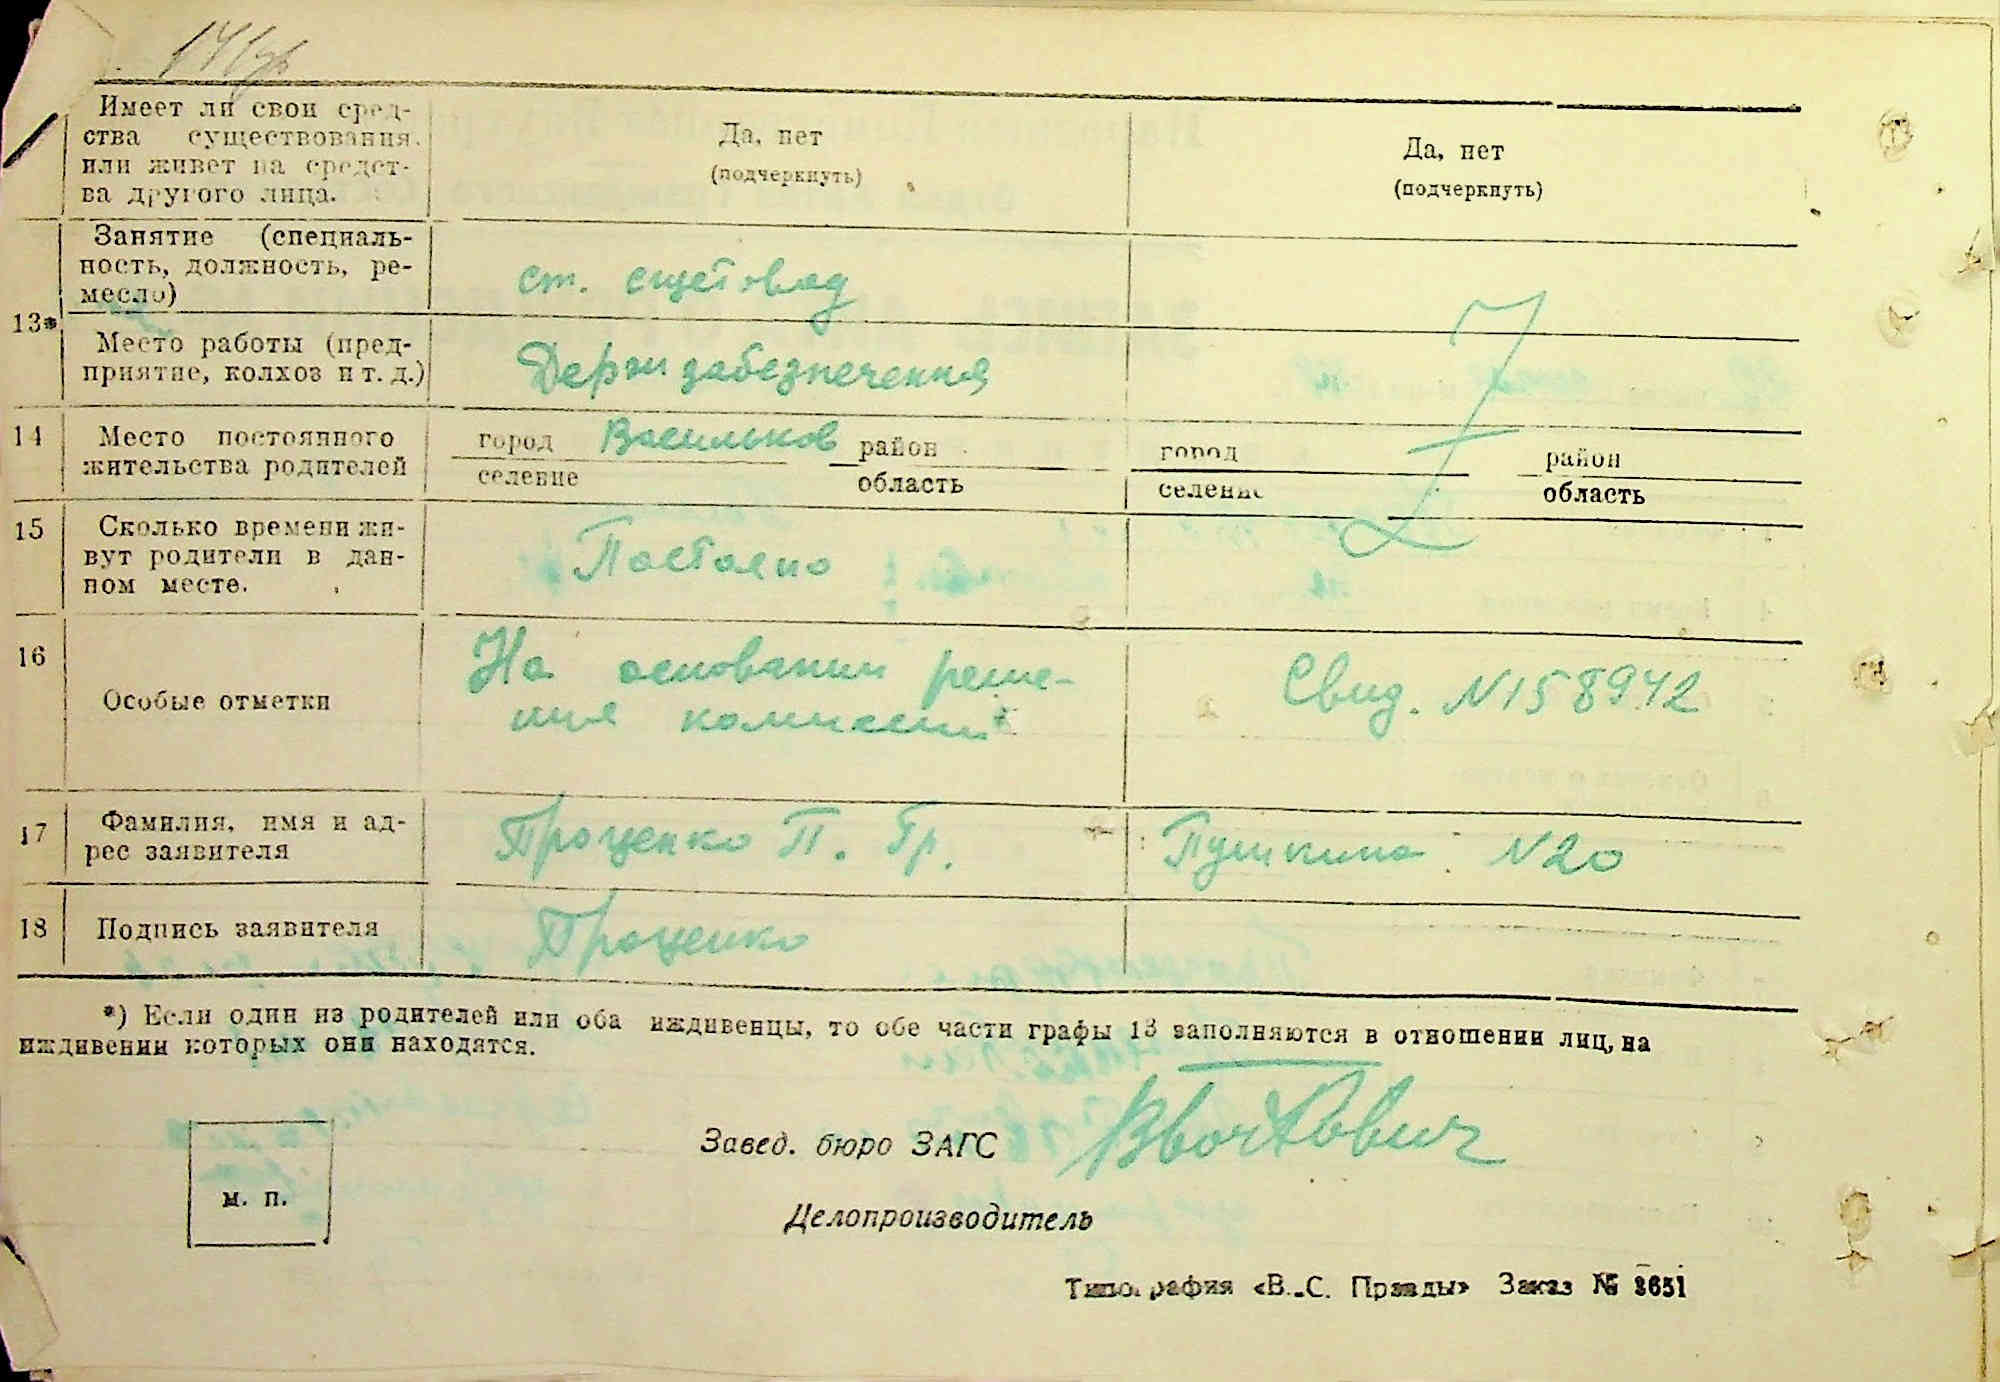 Имеет ли свои сред-
ства существования
или живет на средст-
ва другого лица.
Да, нет
(подчеркнуть)
Да, нет
(подчеркнуть)
13*
Занятие (специаль-
ность, должность, ре-
месло)
ст. сщетовод
Место работы (пред-
приятие, колхоз и т. д.)
Держ забезпечення
14
Место постоянного
жительства родителей
город Васильков район
селение область
город район
селение область
15
Сколько времени жи-
вут родители в дан-
ном месте.
Постояно
16
Особые отметки
На основании реше-
ния комиссии
Свид. N158942
17
Фамилия, имя и ад-
рес заявителя
Проценко П. Гр.
Пушкина N20
18
Подпись заявителя
Проценко
*) Если один из родителей или оба иждивенцы, то обе части графы 13 заполняются в отношении лиц, на
иждивении которых они находятся.
Завед. бюро ЗАГС
м. п.
Делопроизводитель
Типография «В.-С. Правды» Заказ № 3651